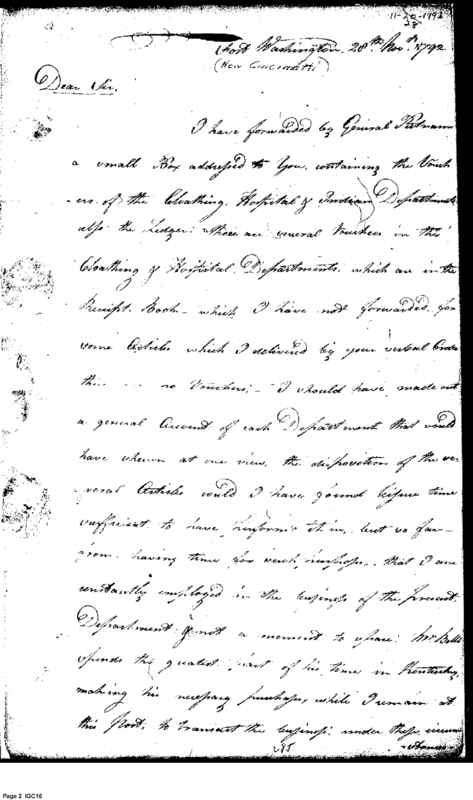 11-28-1792
28
Fort Washington, 28th Novr. 1792
(Now Cincinnati)
Dear Sir,
I have forwarded by General Putnam
a small Box addressed to You, containing the Vouch
-ers of the Cloathing, Hospital & Indian Departments
also the Ledger: there are several Vouchers in the
Cloathing & Hospital Departments, which are in the
Receipt Book - which I have not forwarded, for
some Articles which I delivered by your verbal Order
no Vouchers; - I should have made out
a general Account of each Department that would
have shewn at one view, the disposition of the se
-veral Articles could I have found leisure time
sufficient to have it in, but so far
from having time for such purpose, that I am
constantly employed in the business of the present
Department & not a moment to spare: Mr Belli
spends the greatest part of his time in Kentucky,
making his necessary purchases, while I remain at
this Post, to transact the business; under these circum
-stances
285
Page 2 IGC16